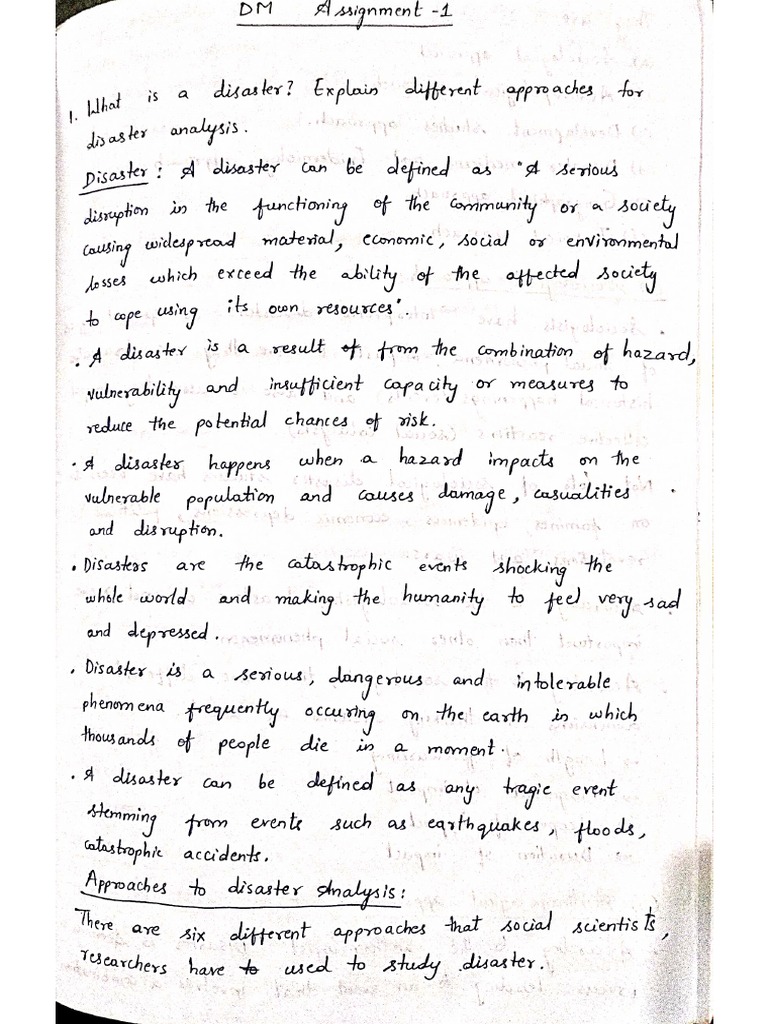 DM Assignment -1
1. What is a disaster? Explain different approaches for
disaster analysis.
Disaster: A disaster can be defined as "A serious
disruption in the functioning of the community or a society
causing widespread material, economic, social or environmental
losses which exceed the ability of the affected society
to cope using its own resources".
• A disaster is a result of from the combination of hazard,
vulnerability and insufficient capacity or measures to
reduce the potential chances of risk.
• A disaster happens when a hazard impacts on the
vulnerable population and causes damage, casualities
and disruption.
• Disasters are the catastrophic events shocking the
whole world and making the humanity to feel very sad
and depressed.
• Disaster is a serious, dangerous and intolerable
phenomena frequently occuring on the earth in which
thousands of people die in a moment.
• A disaster can be defined as any tragic event
stemming from events such as earthquakes, floods,
catastrophic accidents.
Approaches to disaster Analysis:
There are six different approaches that social scientists,
researchers have to used to study disaster.